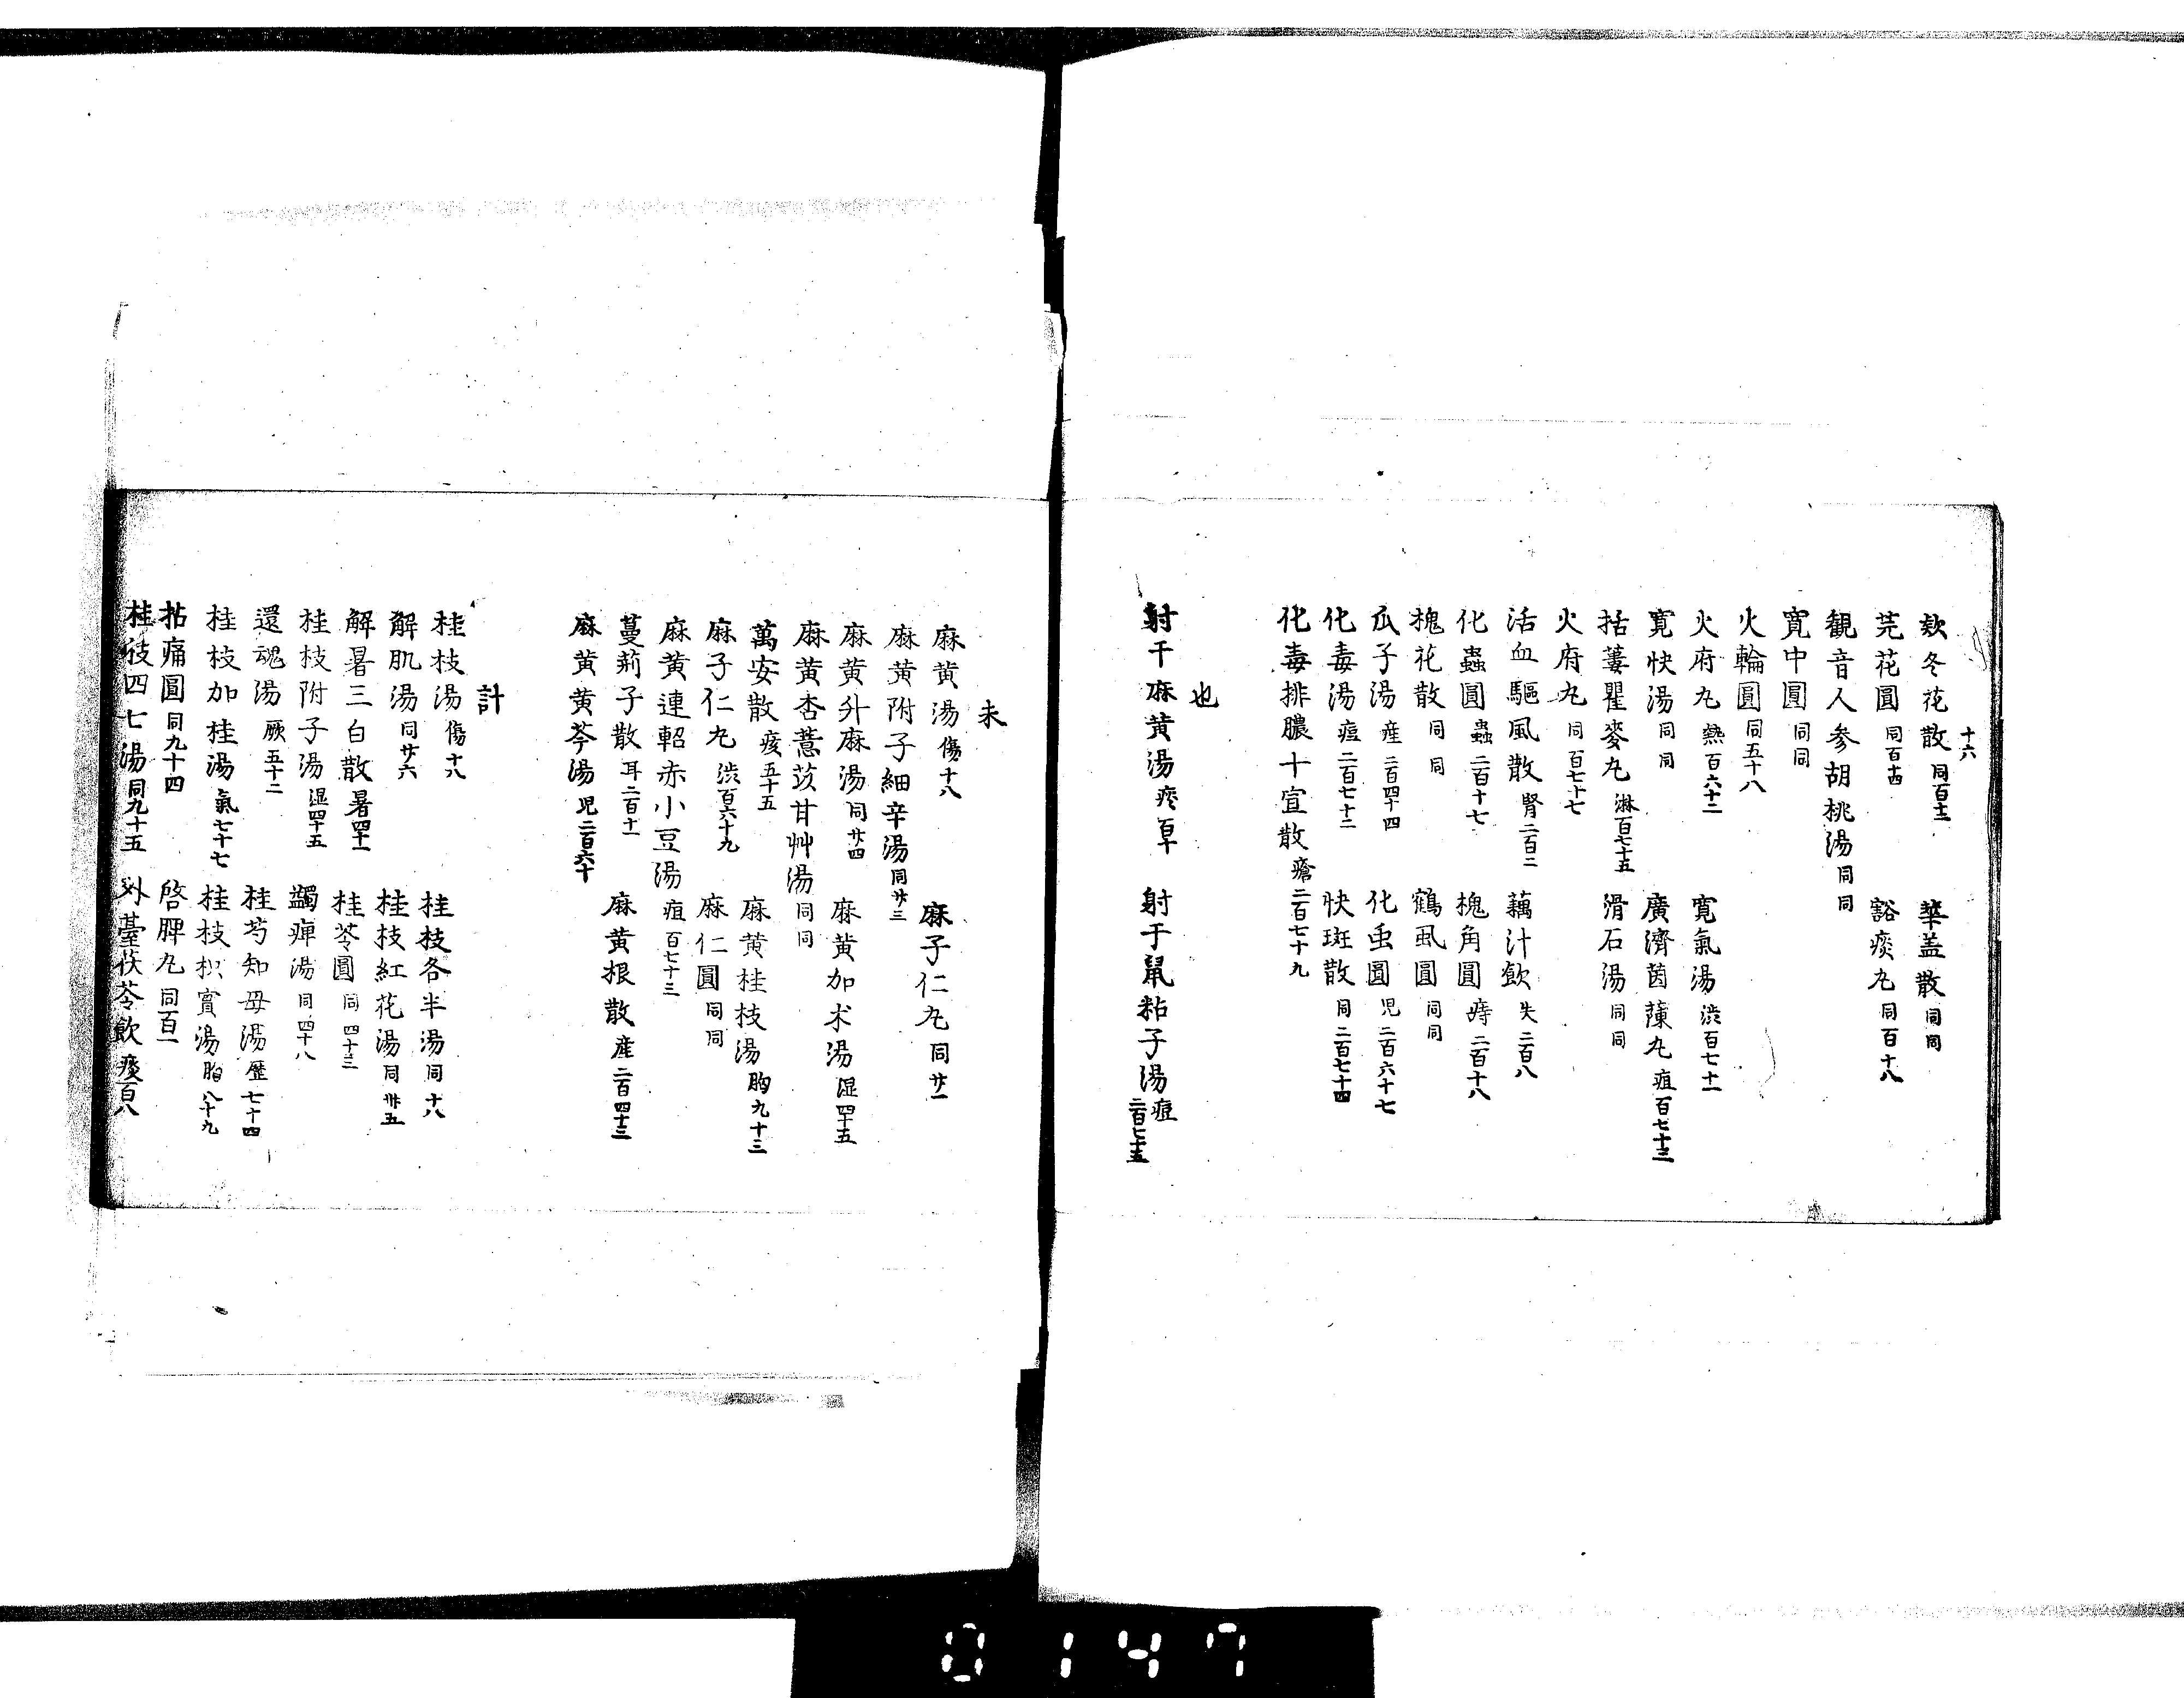 十六
欸冬花散 同百十二 華盖散 同同
芫花圓 同百十四 豁痰丸 同百十八
観音人参胡桃湯 同同
寛中圓 同同
火輪圓 同五十八
火府丸 熱百六十二 寛氣湯 渋百七十一
寛快湯 同同 廣濟茵蔯丸 疸百七十三
括蔞瞿麥丸 淋百七十五 滑石湯 同同
火府丸 同百七十七
活血驅風散 腎二百二 藕汁飲 失二百八
化蟲圓 蟲二百十七 槐角圓 痔二百十八
槐花散 同同 鶴虱圓 同同
瓜子湯 産二百四十四 化虫圓 児二百六十七
化毒湯 痘二百七十二 快斑散 同二百七十四
化毒排膿十宣散 瘡二百七十九
也
射干麻黄湯 射干鼠粘子湯 痘二百七十五
未
麻黄湯 傷十八 麻子仁丸 同廿一
麻黄附子細辛湯 同廿三
麻黄升麻湯 同廿四 麻黄加朮湯 湿四十五
麻黄杏薏苡甘艸湯 同同
萬安散 痎五十五 麻黄桂枝湯 胸九十三
麻子仁丸 渋百六十九 麻仁圓 同同
麻黄連軺赤小豆湯 疸百七十三
蔓荊子散 耳二百十一 麻黄根散 産二百四十三
麻黄黄芩湯 児二百六十
計
桂枝湯 傷十八 桂枝各半湯 同十八
解肌湯 同廿六 桂枝紅花湯 同卅五
解暑三白散 暑四十一 桂苓圓 同四十三
桂枝附子湯 湿四十五 蠲痺湯 同四十八
還魂湯 厥五十二 桂芍知母湯 歴七十四
桂枝加桂湯 氣七十七 桂枝枳實湯 胸八十九
拈痛圓 同九十四 啓脾丸 同百一
桂枝四七湯 同九十五 外臺茯苓飲 痰百八
0147